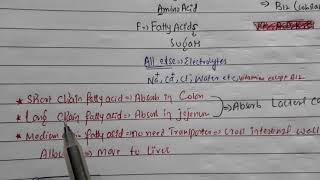 Amino Acid → B12 (cobala
F → Fatty Acids
Sugars
All else → Electrolytes
Na+, Ca+, Cl-, Water etc, Vitamins except B12
* Short Chain fatty acid ⇒ Absorb in Colon
* Long Chain fatty acid ⇒ Absorb in jejenum ⇒ Absorb Lacteal Ca
* Medium fatty acid ⇒ no need Transporter ⇒ Cross intestinal wall
⇒ move to liver